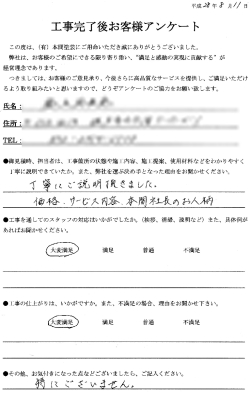 平成28年8月11日
工事完了後お客様アンケート
この度は、(有)本間塗装にご用命いただき誠にありがとうございました。
弊社は、お客様のご希望にできる限り寄り添い、“満足と感動の実現に貢献する”が
経営理念であります。
つきましては、お客様のご意見承り、今後さらに高品質なサービスを提供し、ご満足いただけ
るよう取り組みたいと思いますので、どうぞアンケートのご協力をお願い致します。
氏名:
住所:
TEL:
●御見積時、担当者は、工事箇所の状態や施工内容、施工提案、使用材料などをわかりやすく
丁寧に説明できていたか。また、弊社を選ぶ決め手となった理由をお聞かせください。
丁寧にご説明頂きました。
価格、サービス内容、本間社長のお人柄
●工事を通してのスタッフの対応はいかがでしたか。(挨拶、清掃、説明など)また、具体例が
あればお聞かせください。
大変満足 満足 普通 不満足
●工事の仕上がりは、いかがですか。また、不満足の場合、理由をお聞かせ下さい。
大変満足 満足 普通 不満足
●その他、お気付きになった点などございましたら、ご記入ください。
特にございません。